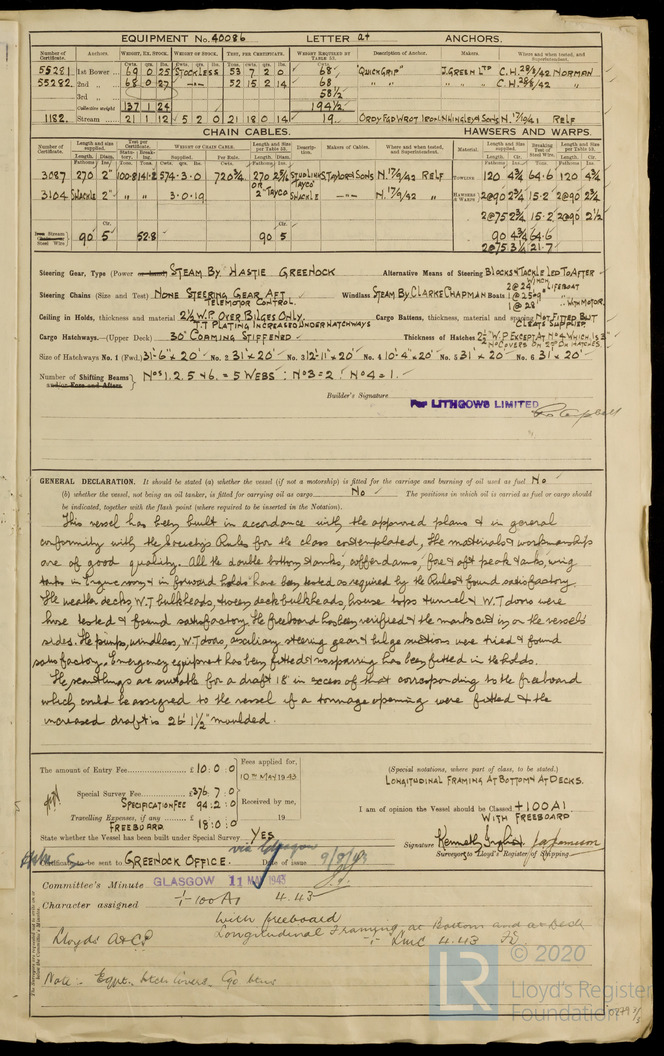 EQUIPMENT No. 40086 LETTER at ANCHORS.
Number of Certificate. Anchors. WEIGHT, EX. STOCK. WEIGHT OF STOCK. TEST, PER CERTIFICATE. WEIGHT REQUIRED BY TABLE 53. Description of Anchor. Makers. Where and when tested, and Superintendent.
Cwts. qrs. lbs. Cwts. qrs. lbs. Tons. cwts. qrs. lbs. Cwts.
55281. 1st Bower 69 0 25 STOCKLESS 53 7 2 0 68 "QUICKGRIP" J. GREEN LTD C.H. 28/8/42 NORMAN
55282. 2nd „ 68 0 27 —"— 52 15 2 14 68 " " " " C.H. 28/8/42 "
3rd „ 58½
Collective weight 137 1 24 194½
1182. Stream 21 1 12 5 2 0 21 18 0 14 19 ORDY FGD WROT IRON N. HINGLEY & SONS N. 17/9/41 RELF
CHAIN CABLES. HAWSERS AND WARPS.
Number of Certificate. Length and size supplied. Test per Certificate. WEIGHT OF CHAIN CABLE. Length and Size per Table 53. Description. Makers of Cables. Where and when tested, and Superintendent. Material. Length and size supplied. Breaking Test of Steel Wire. Length and Size per Table 53.
Length. Diam. Statutory. Breaking. Supplied. Per Rule. Length. Diam. Length. Cir. Length. Cir.
Fathoms Ins. Tons. Tons. Cwts. qrs. lbs. Cwts. Fathoms Ins. Fathoms Ins. Tons. Fathoms Ins.
3087 270 2" 100.8 141.2 574.3.0 720¾ 270 2¼ STUD LINK TAYCO S. TAYLOR & SONS N. 17/9/42 RELF TOWLINE 120 4¾ 64.6 120 4¾
OR 2" TAYCO
3104 SHACKLE 2" " " 3.0.19 SHACKLE —"— N. 17/9/42 " HAWSERS & WARPS 2@90 2¾ 15.2 2@90 2¾
2@75 2¾ 15.2 2@90 2½
Iron Stream Chain or Steel Wire 90 5" 52.8 90 5 90 4¾ 64.6
2@75 3¼ 21.7
Steering Gear, Type (Power or hand) STEAM BY HASTIE GREENOCK Alternative Means of Steering BLOCKS & TACKLE LED TO AFTER WINCH
Steering Chains (Size and Test) NONE STEERING GEAR AFT TELEMOTOR CONTROL. Windlass STEAM BY CLARKE CHAPMAN Boats 2@24' LIFEBOAT
1@25'9" "
1@28' " WITH MOTOR.
Ceiling in Holds, thickness and material 2½ W.P. OVER BILGES ONLY. T.T PLATING INCREASED UNDER HATCHWAYS Cargo Battens, thickness, material and spacing NOT FITTED BUT CLEATS SUPPLIED
Cargo Hatchways.—(Upper Deck) 30" COAMING STIFFENED Thickness of Hatches 2½" W.P. EXCEPT AT No 4 WHICH IS 3" NO COVERS ON 2ND DK HATCHES.
Size of Hatchways No. 1 (Fwd.) 31'-6" x 20' No. 2 31' x 20' No. 3 12'-11" x 20' No. 4 10'-4" x 20' No. 5 31' x 20' No. 6 31' x 20'
Number of Shifting Beams and/or Fore and Afters Nos 1. 2. 5 & 6. = 5 WEBS : No 3 = 2 : No 4 = 1.
Builder's Signature
For LITHGOWS LIMITED
GENERAL DECLARATION. It should be stated (a) whether the vessel (if not a motorship) is fitted for the carriage and burning of oil used as fuel No
(b) whether the vessel, not being an oil tanker, is fitted for carrying oil as cargo No The positions in which oil is carried as fuel or cargo should
be indicated, together with the flash point (where required to be inserted in the Notation).
This vessel has been built in accordance with the approved plans & in general
conformity with the Society's Rules for the class contemplated, the materials & workmanship
are of good quality. All the double bottom tanks, cofferdams, fore & aft peak tanks, wing
tanks in Engine room & in forward holds have been tested as required by the Rules & found satisfactory
The weather decks, W.T bulkheads, tween deck bulkheads, house tops tunnel & W.T doors were
hose tested & found satisfactory. The freeboard has been verified & the marks cut in on the vessel's
sides. The pumps, windlass, W.T doors, auxiliary steering gear & bilge suctions were tried & found
satisfactory. Emergency equipment has been fitted & no sparring has been fitted in the holds.
The scantlings are suitable for a draft 18" in excess of that corresponding to the freeboard
which could be assigned to the vessel if a tonnage opening were fitted & the
increased draft is 26' 1½" moulded.
The amount of Entry Fee £ 10 : 0 : 0
Special Survey Fee £376 : 7 : 0
SPECIFICATION FEE 94 : 2 : 0
Travelling Expenses, if any £
FREEBOARD 18 : 0 : 0
Fees applied for,
10TH MAY 1943
Received by me,
19
(Special notations, where part of class, to be stated.)
LONGITUDINAL FRAMING AT BOTTOM & AT DECKS.
I am of opinion the Vessel should be Classed +100A1
WITH FREEBOARD
State whether the Vessel has been built under Special Survey YES
Signature Kenneth
Surveyors to Lloyd's Register of Shipping.
via Glasgow
Certificate to be sent to GREENOCK OFFICE. Date of issue 9/8/43
Committee's Minute GLASGOW 11 MAY 1943
Character assigned +100A1 4.43
with freeboard
Longitudinal Framing at Bottom and at Deck
Lloyds A & CP + LMC 4.43 FD
Note :-
© 2020
LR
Lloyd's Register
Foundation